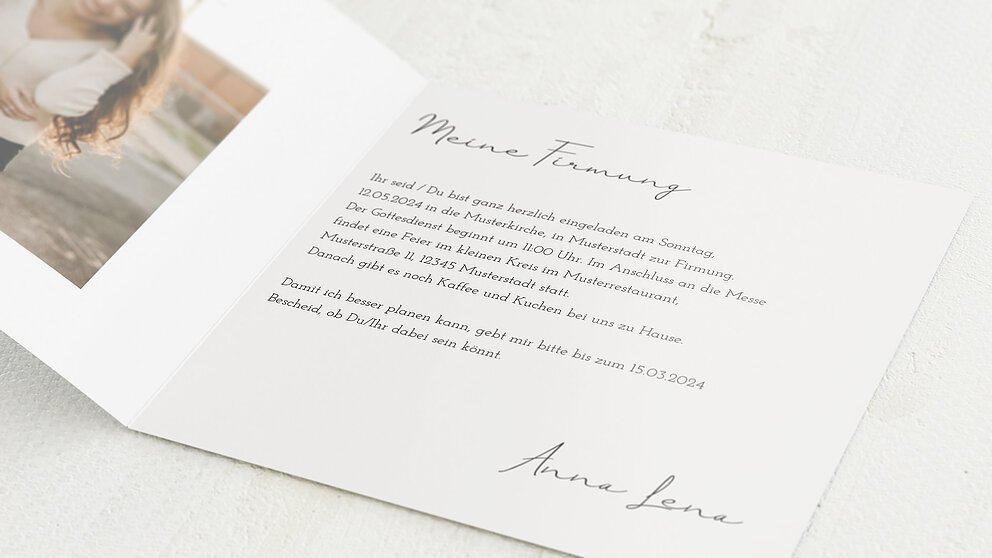 Meine Firmung
Ihr seid / Du bist ganz herzlich eingeladen am Sonntag,
12.05.2024 in die Musterkirche, in Musterstadt zur Firmung.
Der Gottesdienst beginnt um 11:00 Uhr. Im Anschluss an die Messe
findet eine Feier im kleinen Kreis im Musterrestaurant,
Musterstraße 11, 12345 Musterstadt statt.
Danach gibt es noch Kaffee und Kuchen bei uns zu Hause.
Damit ich besser planen kann, gebt mir bitte bis zum 15.03.2024
Bescheid, ob Du/Ihr dabei sein könnt.
Anna Lena